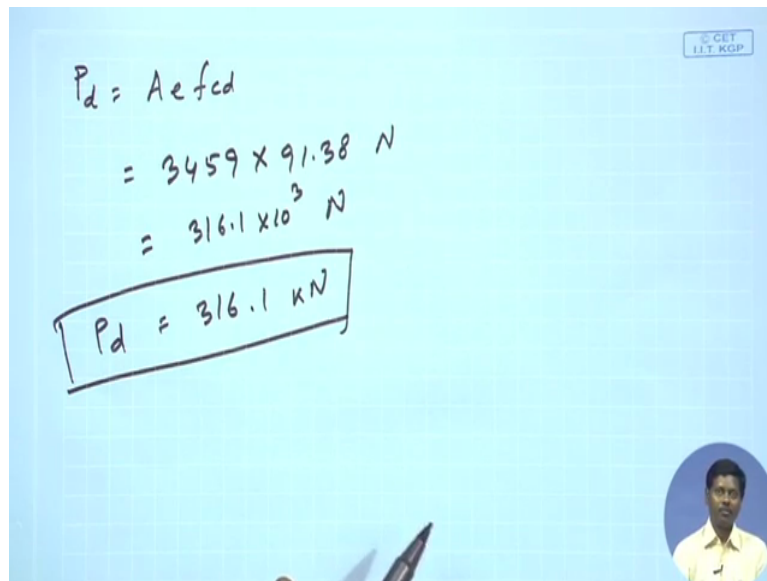 © CET
I.I.T. KGP
Pd = Ae fcd
= 3459 × 91.38 N
= 316.1 × 10³ N
Pd = 316.1 KN